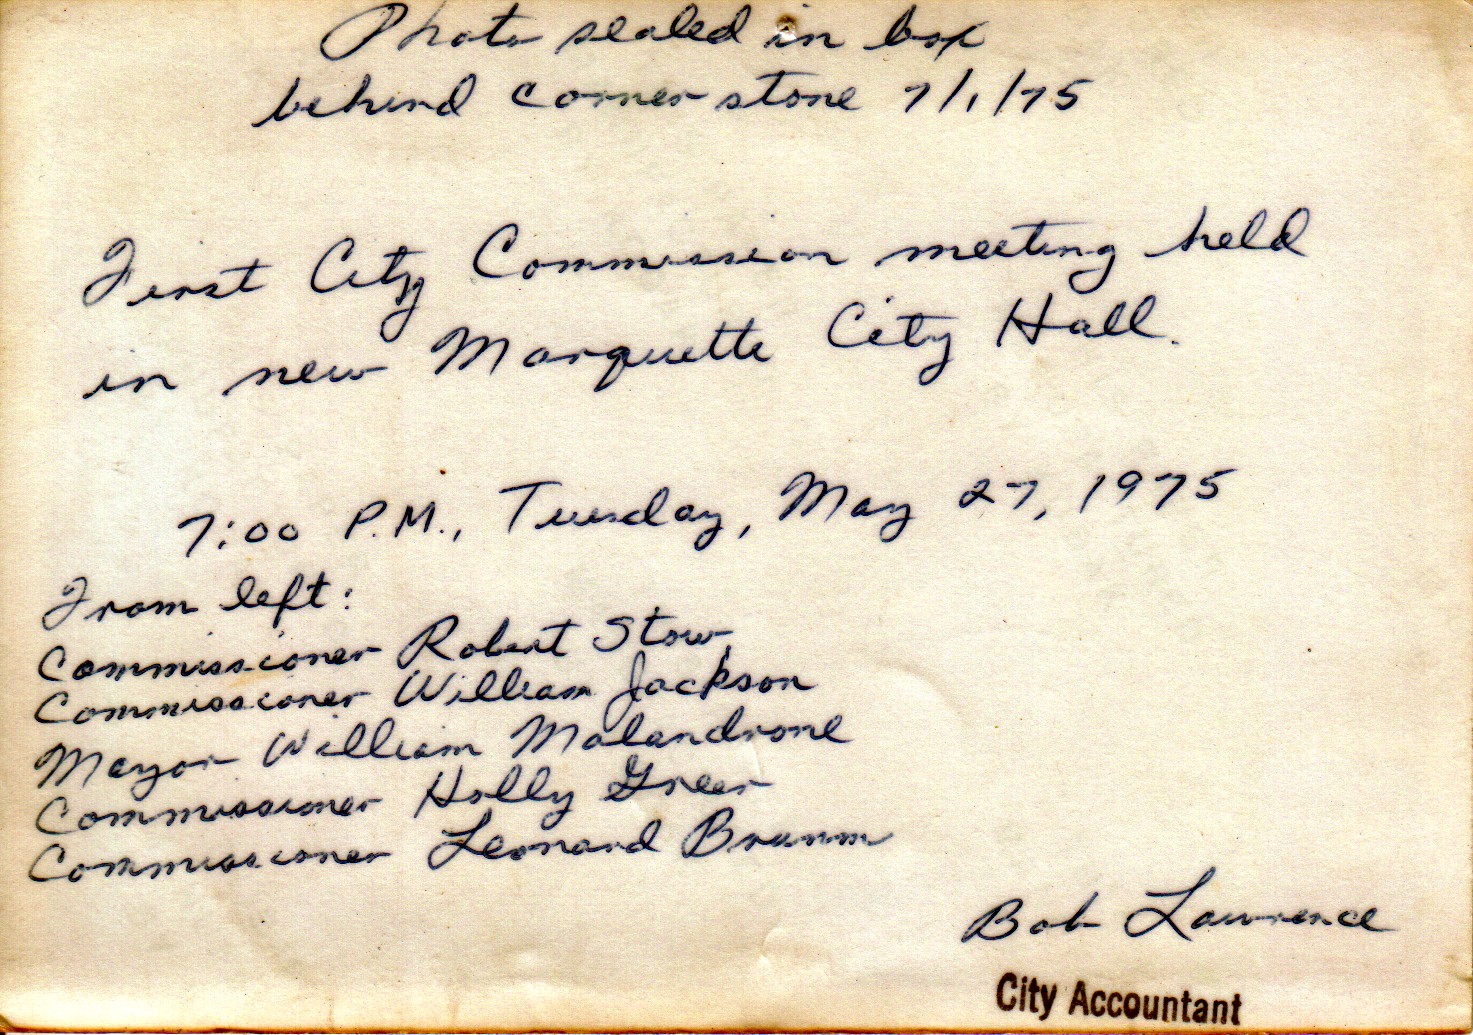 Photo sealed in box
behind corner stone 7/1/75
First City Commission meeting held
in new Marquette City Hall.
7:00 P.M., Tuesday, May 27, 1975
From left:
Commissioner Robert Stow
Commissioner William Jackson
Mayor William Malandrone
Commissioner Holly Greer
Commissioner Leonard Brumm
Bob Lawrence
City Accountant